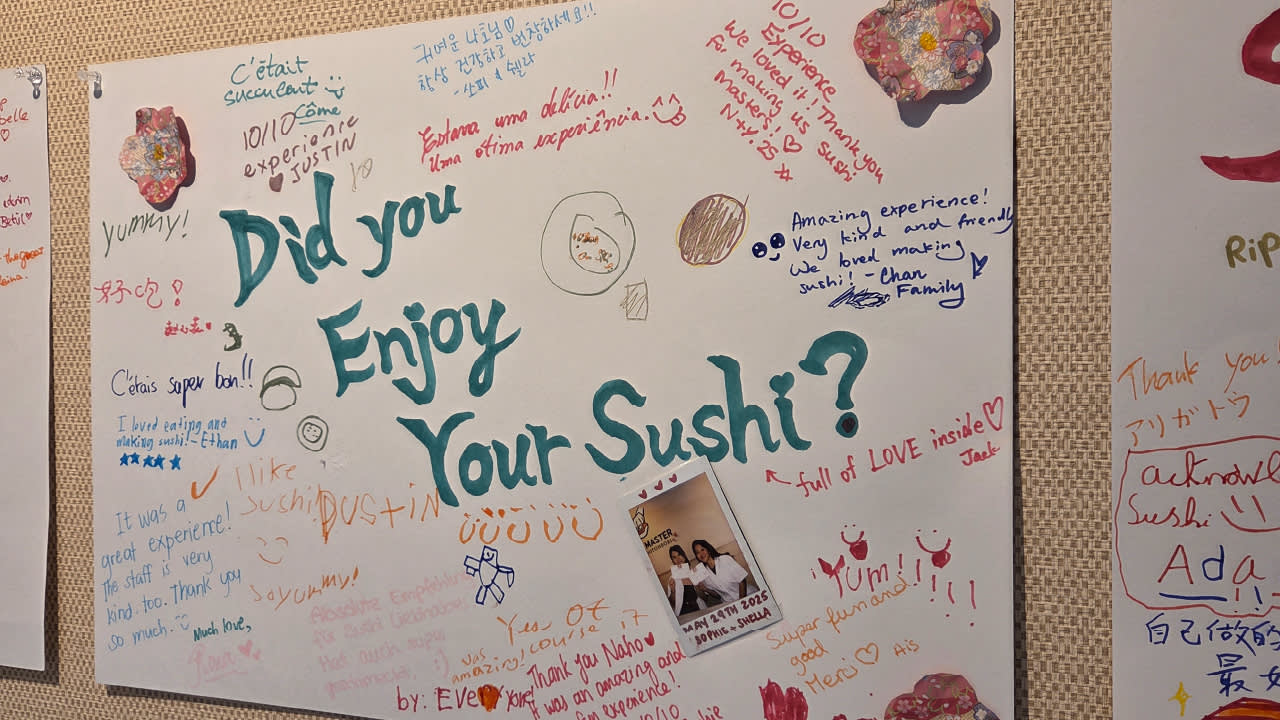 C'était
succulent
Côme
10/10
experience
JUSTIN
10
귀여운 나호님♡
항상 건강하고 번창하세요!!
- 소피 & 쉘라
Estava uma delícia!!
Uma otima experiência.
10/10
Experience
We loved it! Thank you
for making us sushi
masters! ♡
N+Y. 25
YUMMY!
好吃!
Did you
Enjoy
Your Sushi?
Amazing experience!
Very kind and friendly
We loved making
sushi! - Chan
Family
C'étais super bon!!
I loved eating and
making sushi! - Ethan
★★★★★
I like
Sushi!
DUStiN
It was a
great experience!
The staff is very
kind. too. Thank you
so much.
Much love,
So yummy!
Absolute Empfehlung
für Sushi Liebhaber
Hat auch super
:)
← full of LOVE inside♡
Jack
MASTER
MAY 29TH 2025
SOPHIE + SHELLA
Yum!!!!!
Yes Of
course it
was
amazing!
by: EVERYone!
Thank you Naho♥
It was an amazing and
fun experience!
10/10
Super fun and
good
Merci ♡
belle
the great
RiP
Thank you!
アリガトウ
acknowl
Sushi
Ada
!!
自己做的
最好